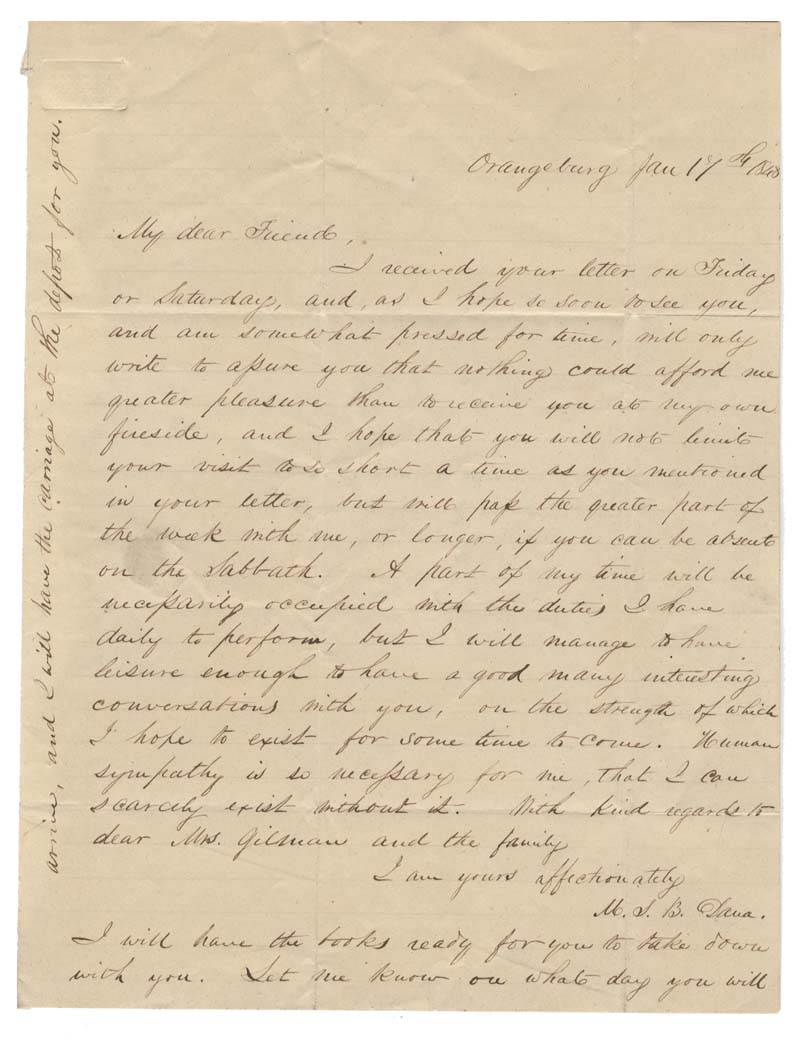 Orangeburg Jan 17th
My dear Friend,
I received your letter on Friday
or Saturday, and, as I hope so soon to see you,
and am somewhat pressed for time, will only
write to assure you that nothing could afford me
greater pleasure than to receive you at my own
fireside, and I hope that you will not limit
your visit to so short a time as you mentioned
in your letter, but will pass the greater part of
the week with me, or longer, if you can be absent
on the Sabbath. A part of my time will be
necessarily occupied with the duties I have
daily to perform, but I will manage to have
leisure enough to have a good many interesting
conversations with you, on the strength of which
I hope to exist for some time to come. Human
sympathy is so necessary for me, that I can
scarcely exist without it. With kind regards to
dear Mrs. Gilman and the family
I am yours affectionately
M. S. B. Dana.
I will have the books ready for you to take down
with you. Let me know on what day you will
arrive, and I will have the carriage at the depot for you.